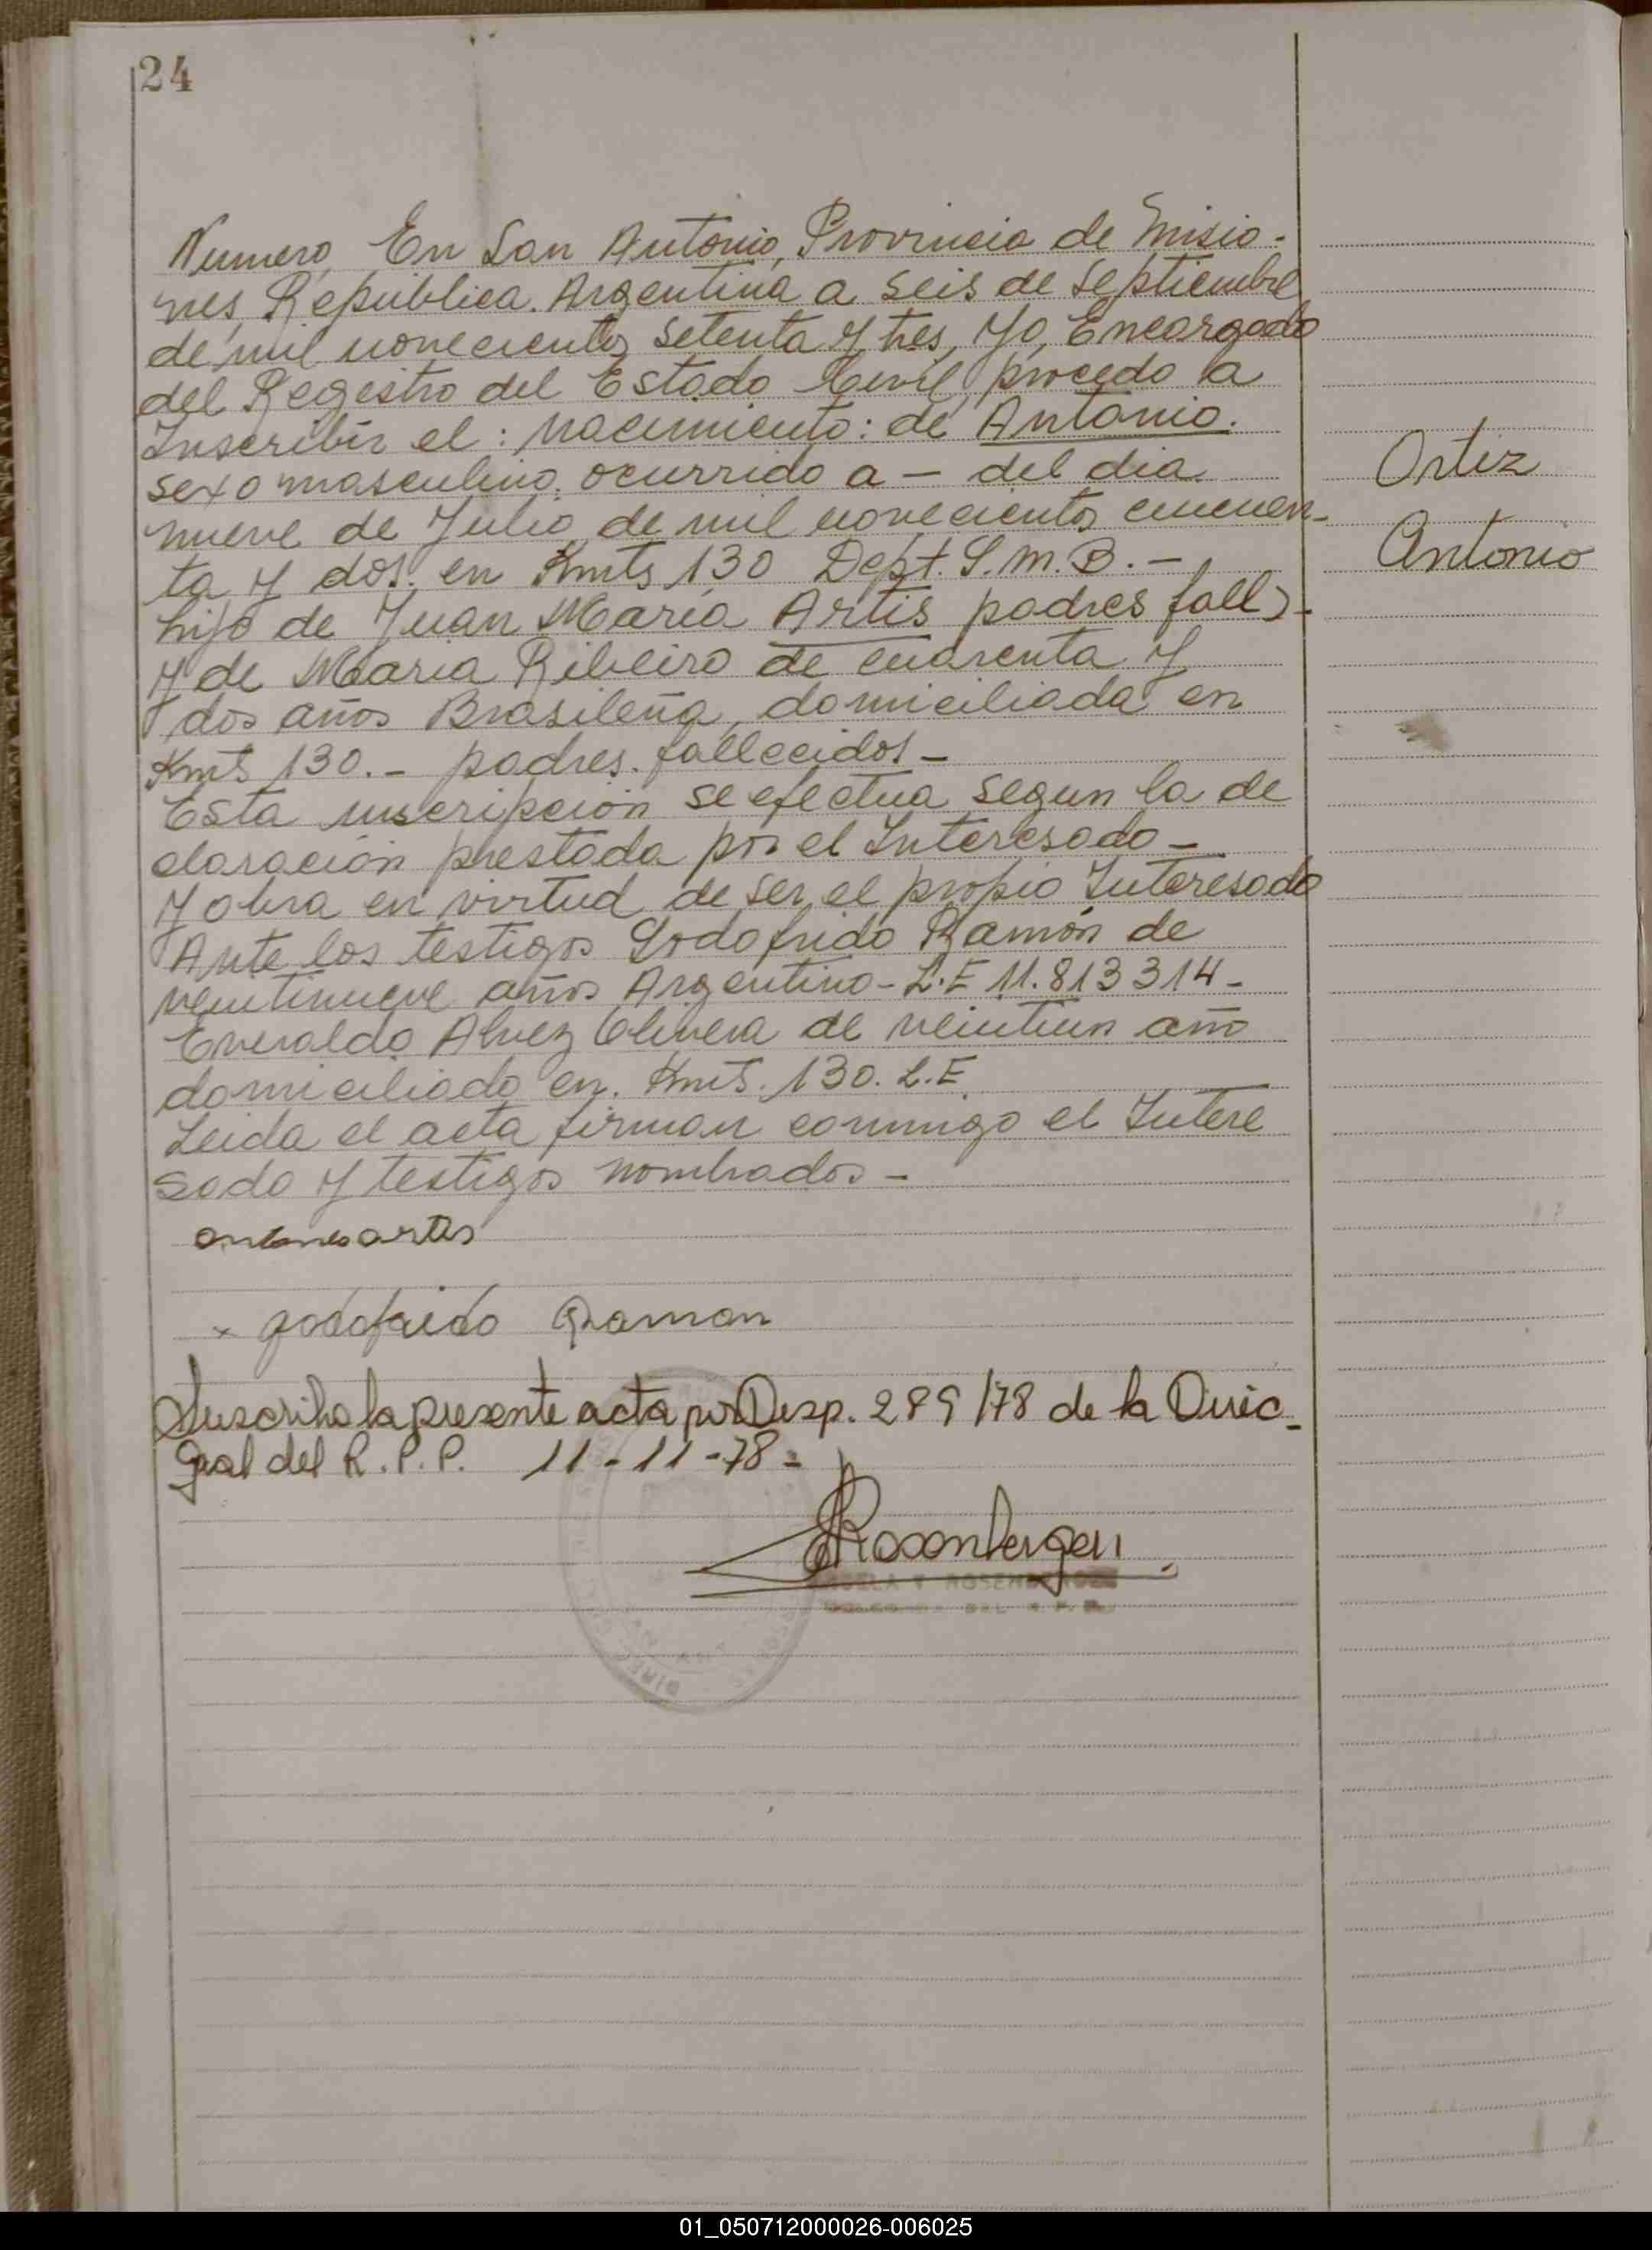 24
Numero, En San Antonio, Provincia de Misio-
nes República. Argentina a seis de septiembre
de mil novecientos setenta y tres, Yo, Encargado
del Registro del Estado Civil, procedo a
Inscribir el: nacimiento: de Antonio.
sexo masculino. ocurrido a — del dia
nueve de Julio de mil novecientos cincuen-
ta y dos. en Kmts 130 Dept. G.M.B. —
hijo de Juan María Artis padres fall)-
y de María Ribeiro de cuarenta y
dos años Brasileña, domiciliada en
Kmts 130. — padres. fallecidos —
Esta inscripción se efectua segun la de
claración prestada por el Interesado —
y obra en virtud de ser el propio Interesado
Ante los testigos Godofrido Ramón de
veintinueve años Argentino - L.E 11.813314 -
Everaldo Alvez Olivera de veintiun año
domiciliado en. Kmts. 130. L.E.
Leida el acta firman conmigo el Intere
sado y testigos nombrados —
Ortiz
Antonio
antonio artis
x godofrido Ramon
Suscribo la presente acta por Disp. 289/78 de la Direc-
Gral del R.P.P. 11-11-78 =
Rosenberger
01_050712000026-006025